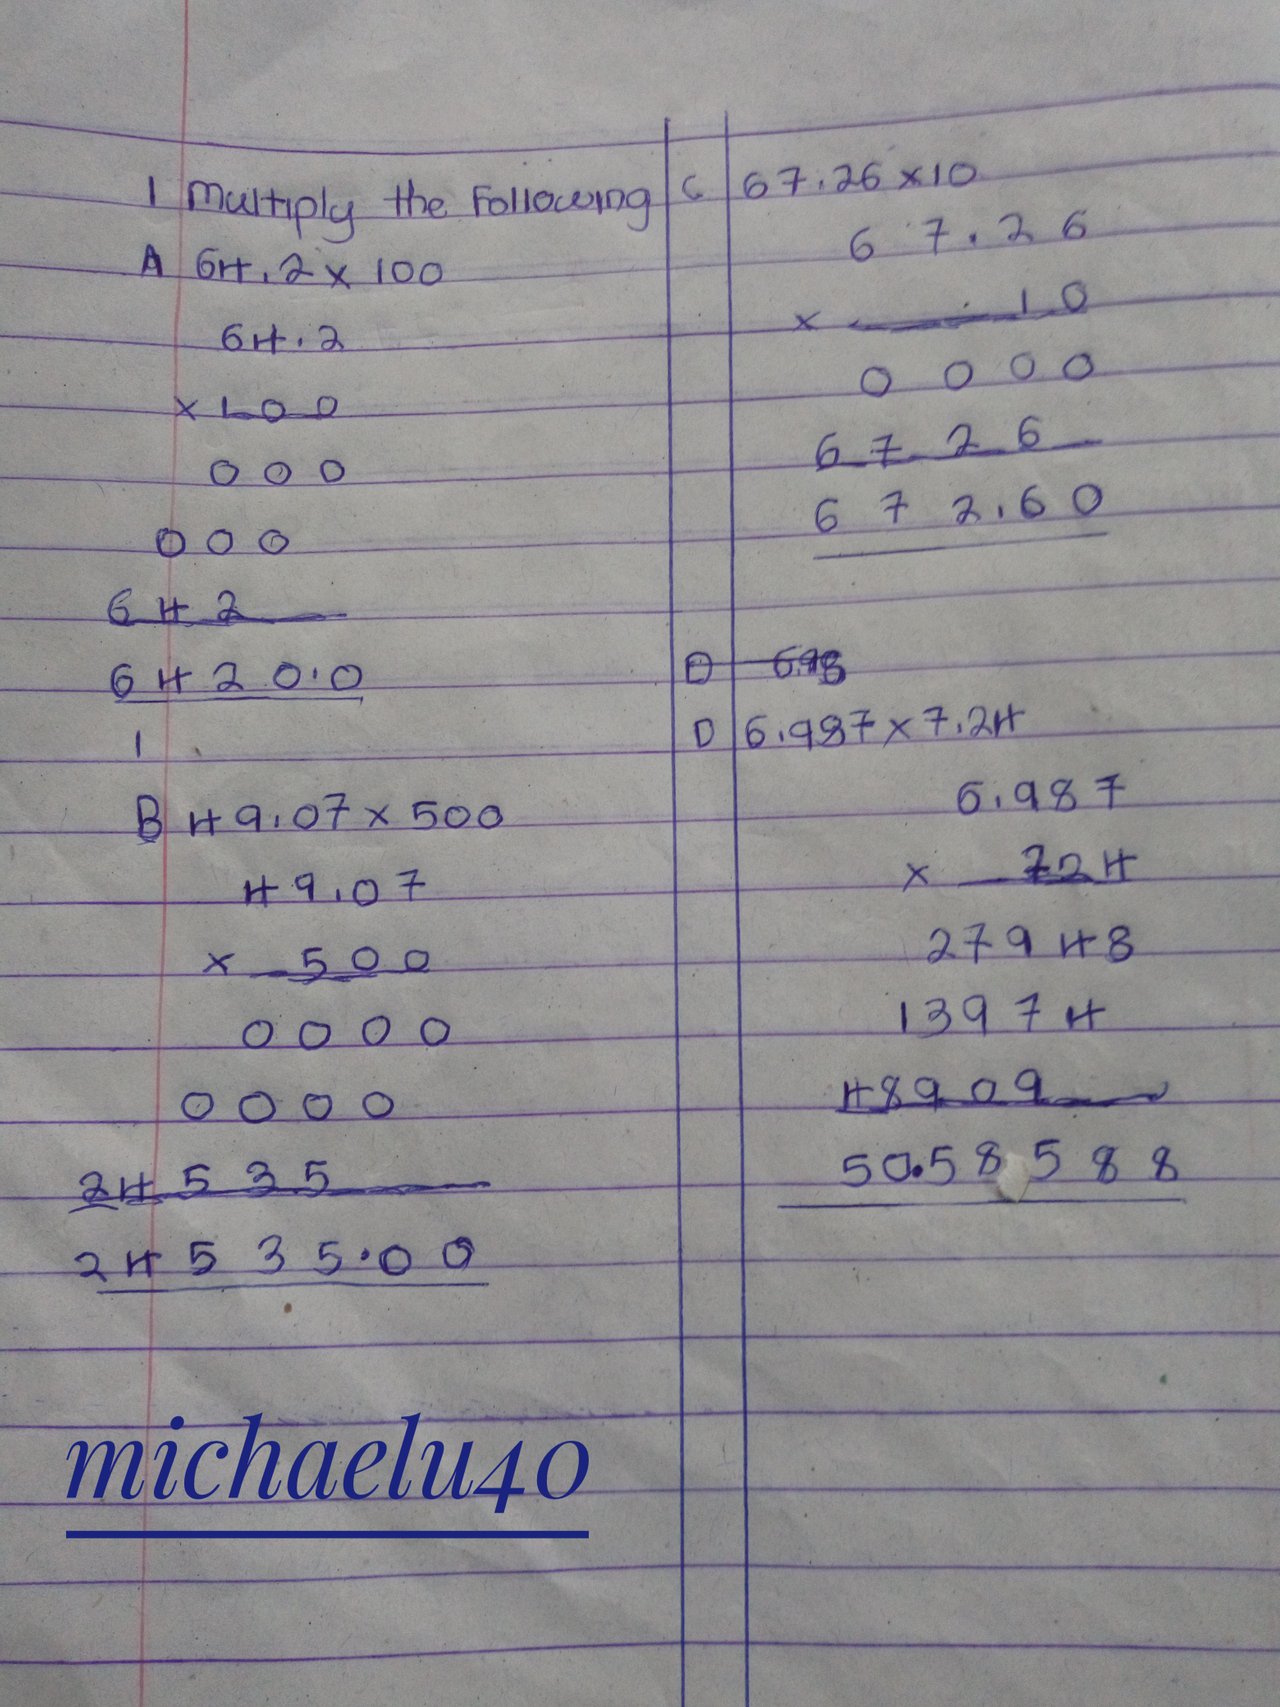 1 Multiply the Following
A 64.2 x 100
64.2
x 100
000
000
642
6420.0
1
B 49.07 x 500
49.07
x 500
0000
0000
24535
24535.00
C 67.26 x 10
67.26
x 10
0000
6726
672.60
D 6.98
D 6.987 x 7.24
6.987
x 724
27948
13974
48909
50.58588
michaelu40